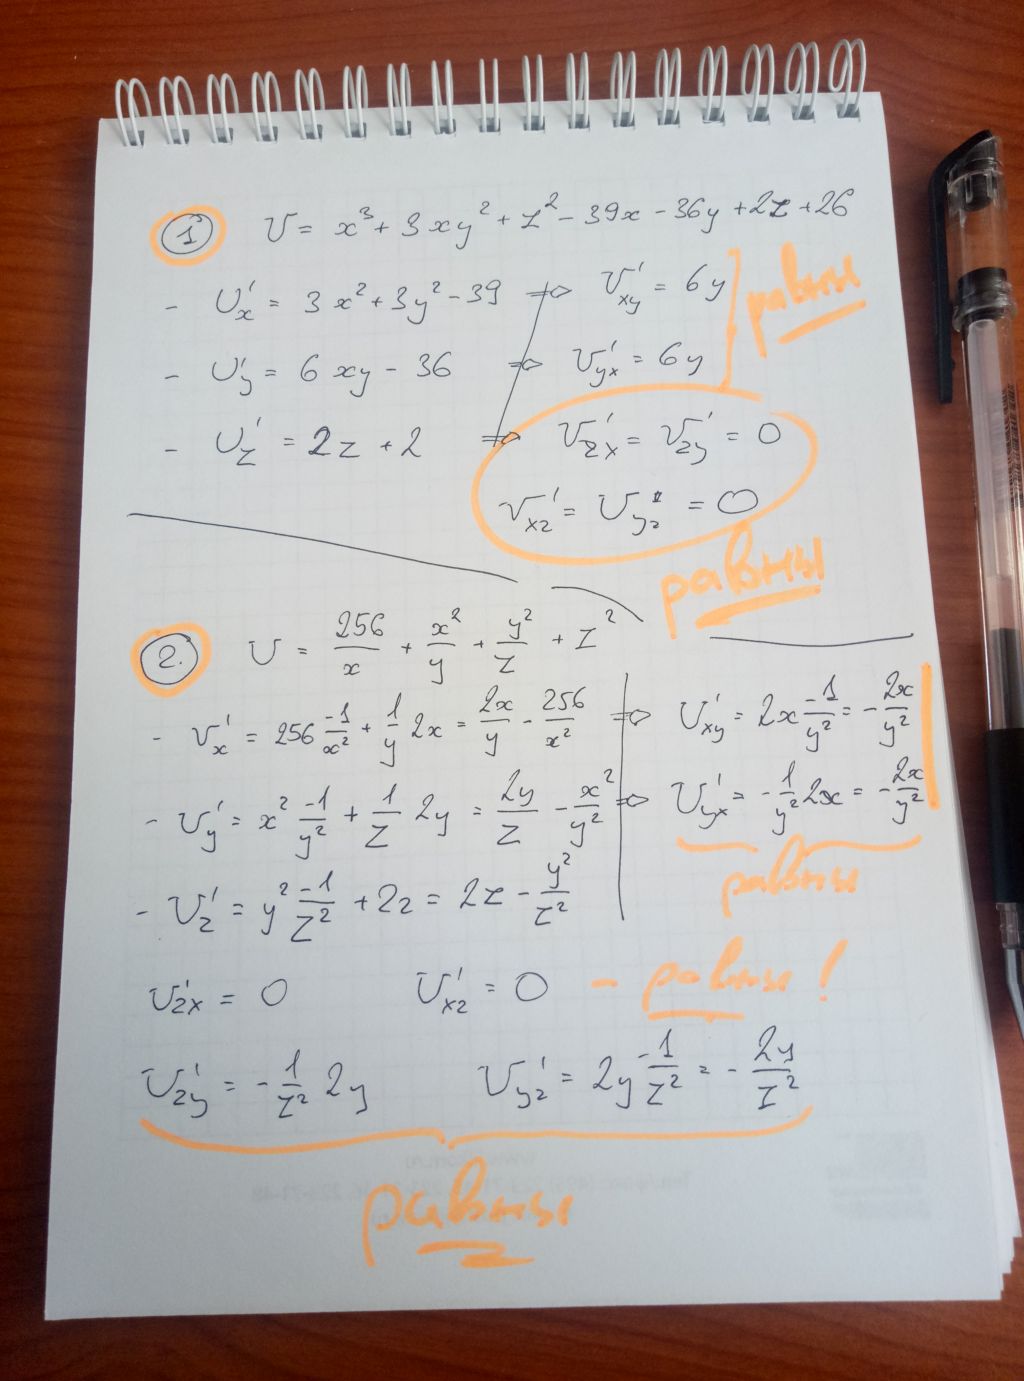 1 U = x³ + 3xy² + z² - 39x - 36y + 2z + 26
- U'x = 3x² + 3y² - 39 ⇒ U'xy = 6y
равны
- U'y = 6xy - 36 ⇒ U'yx = 6y
- U'z = 2z + 2 ⇒ U'zx = U'zy = 0
U'xz = U'yz = 0
равны
2. U = 256/x + x²/y + y²/z + z²
- U'x = 256 -1/x² + 1/y 2x = 2x/y - 256/x² ⇒ U'xy = 2x -1/y² = - 2x/y²
- U'y = x² -1/y² + 1/z 2y = 2y/z - x²/y² ⇒ U'yx = - 1/y² 2x = - 2x/y²
равны
- U'z = y² -1/z² + 2z = 2z - y²/z²
U'zx = 0 U'xz = 0 - равны!
U'zy = - 1/z² 2y U'yz = 2y -1/z² = - 2y/z²
равны